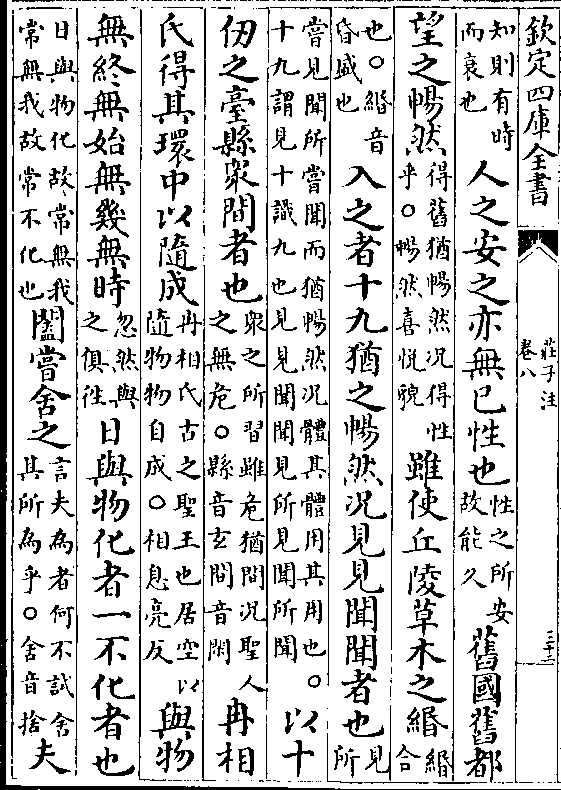 欽定四庫全書
莊子注
卷八
三十二
知則有時
而衰也
人之安之亦無已性也
性之所安
故能久
舊國舊都
望之暢然
得舊猶暢然況得性
乎〇暢然喜悅貌
雖使丘陵草木之緡
緡合
也〇緡音
昏盛也
入之者十九猶之暢然况見見聞聞者也
見所
嘗見聞所嘗聞而猶暢然况體其體用其用也〇
十九謂見十識九也見見聞聞見所見聞所聞
以十
仞之臺縣衆間者也
衆之所習雖危猶閒況聖人
之無危〇縣音玄間音閑
冉相
氏得其環中以隨成
冉相氏古之聖王也居空以
隨物物自成〇相息亮反
與物
無終無始無幾無時
忽然與
之俱徃
日與物化者一不化者也
日與物化故常無我
常無我故常不化也
闔嘗舍之
言夫為者何不試舍
其所為乎〇舍音捨
夫